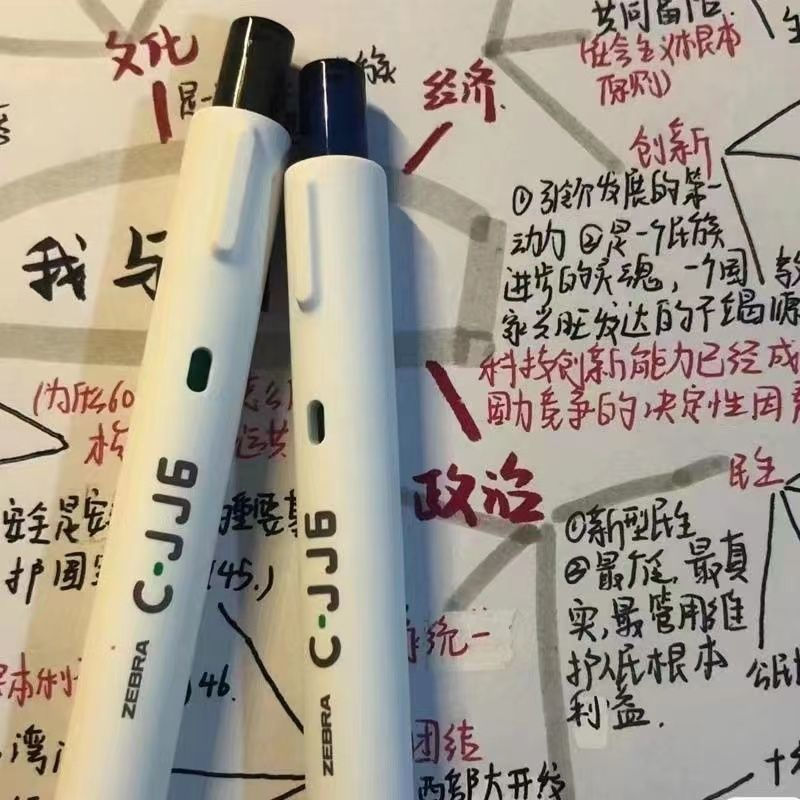 文化
经济
共同富裕
(社会主义根本
原则)
创新
①引领发展的第一
动力②是一个民族
进步的灵魂,一个国
家兴旺发达的不竭源
科技创新能力已经成
国力竞争的决定性因素
我与
(为什么60
政治
民主
①新型民主
②最广泛,最真
实,最管用维
护人民根本
利益.
安全是安
的重要基
护国
(45.)
统一
46.
团结
西部大开发
公民
C·JJ6
ZEBRA
C·JJ6
ZEBRA